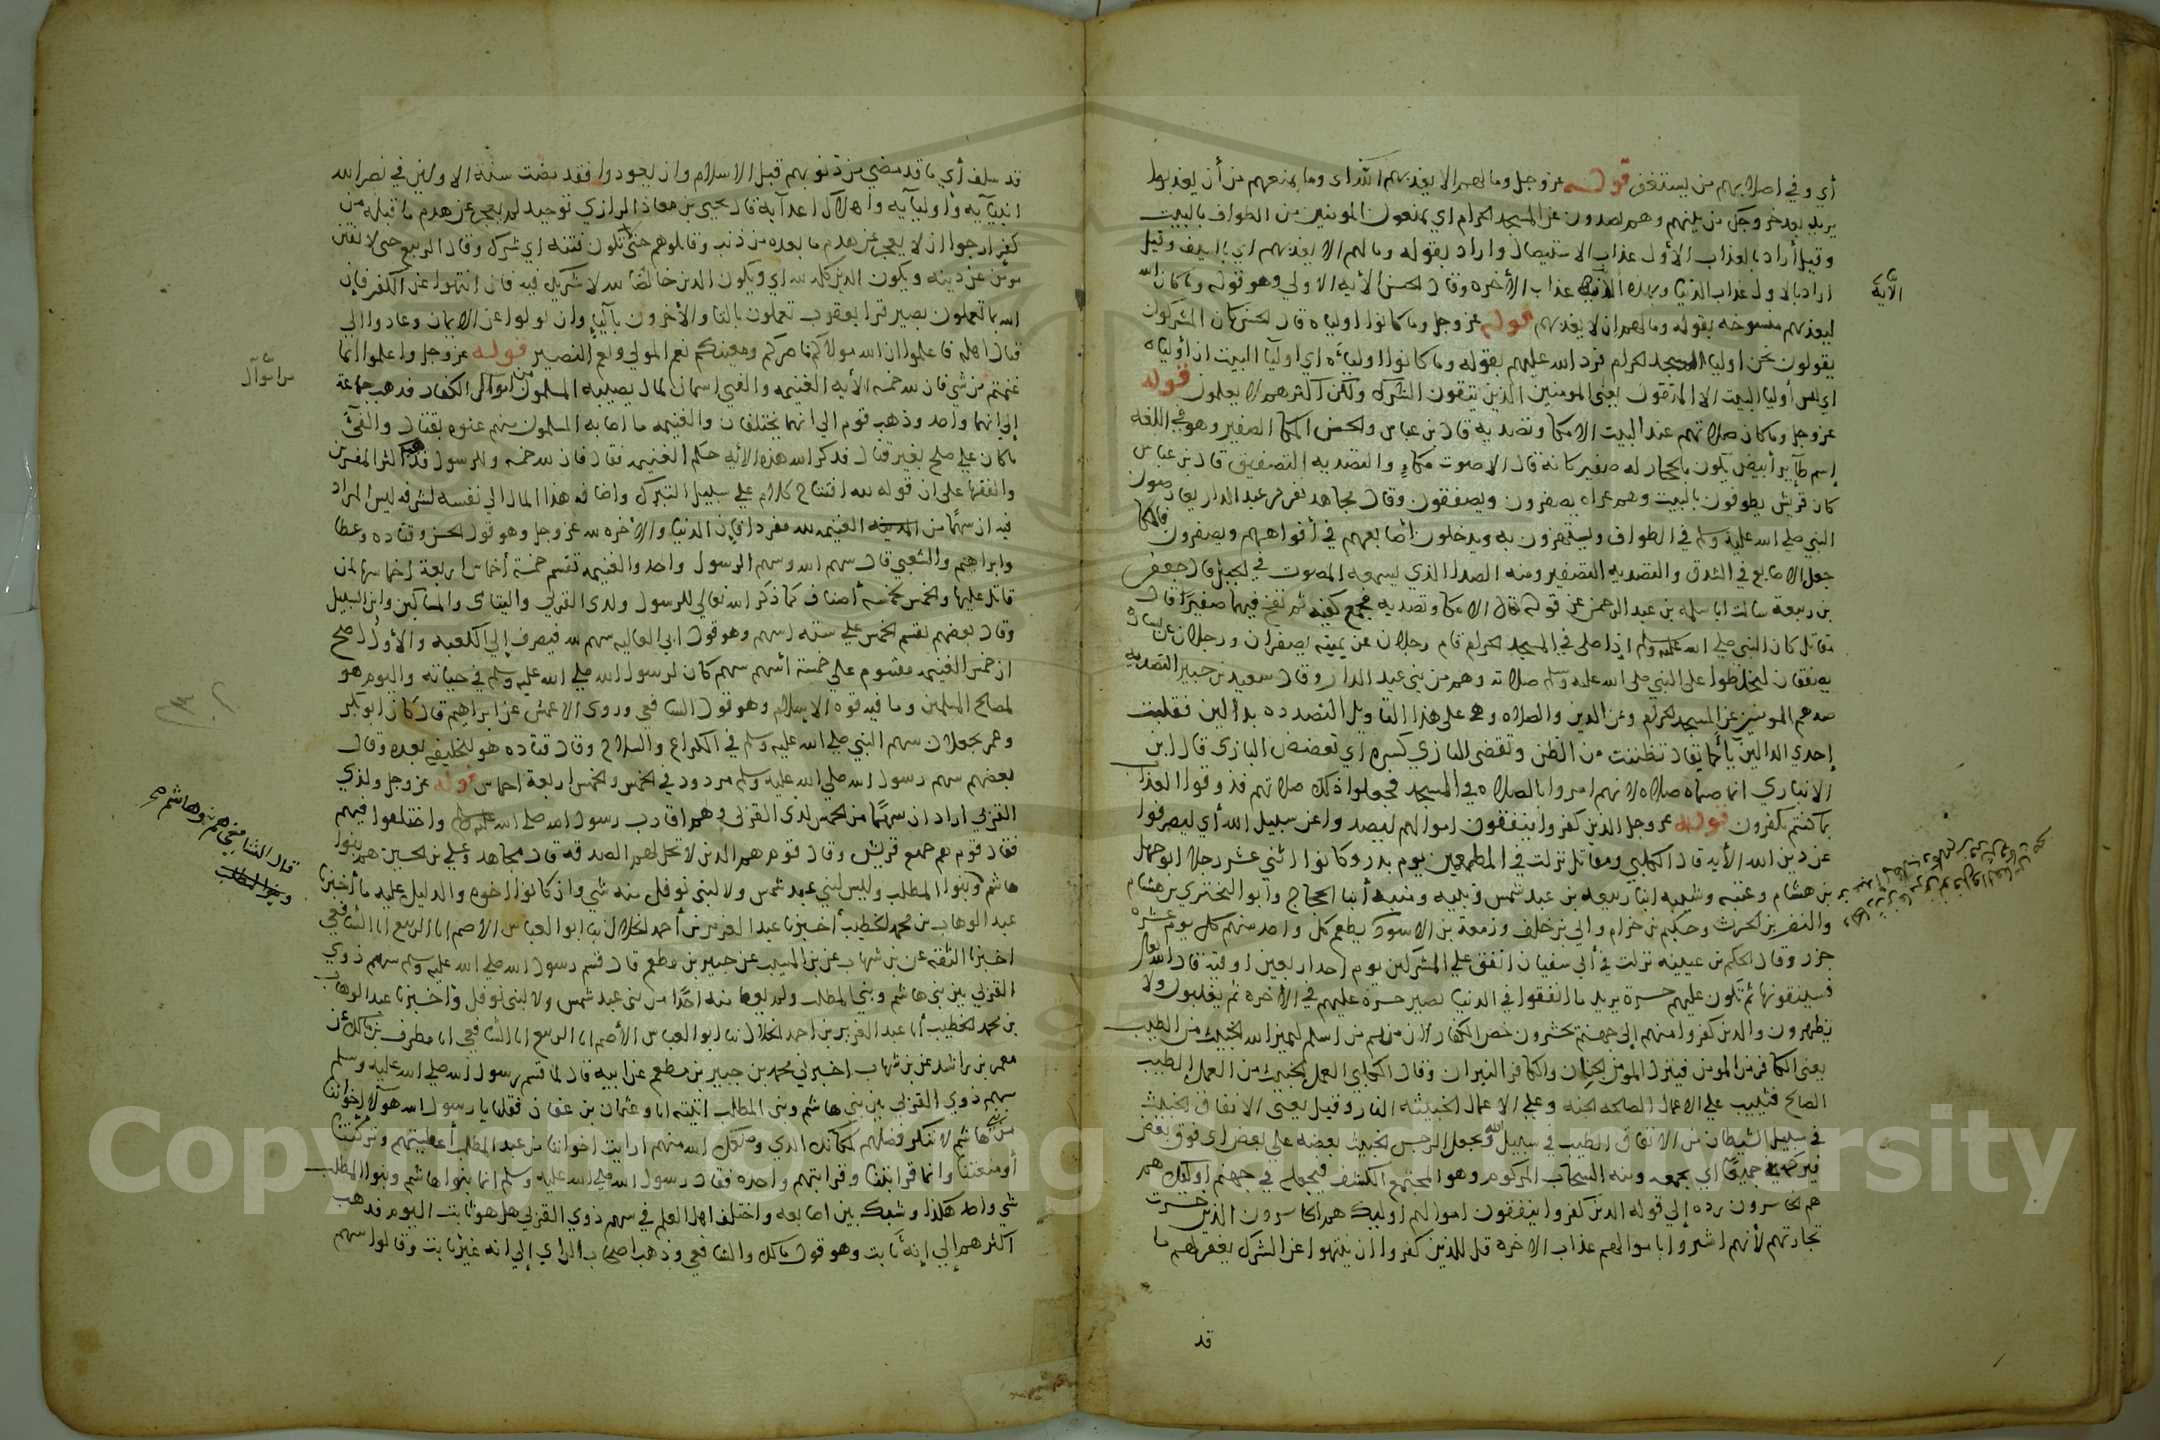 أي وفي اصلابهم من يستغفر قوله عز وجل وما لهم الا يعذبهم الله اي وما يمنعهم من أن يعذبوا
يريد بعد خروجك من بينهم وهم يصدون عن المسجد الحرام اي يمنعون المومنين من الطواف بالبيت
وقيل أراد بالعذاب الأول عذاب الاستيصال واراد بقوله وما لهم الا يعذبهم اي بالسيف وقيل
اراد بالاول عذاب الدنيا وبهذه الآية عذاب الأخرة وقال الحسن الأية الاولي وهو قوله وما كان الله
ليعذبهم منسوخة بقوله وما لهم ان لا يعذبهم قوله عز وجل وما كانوا اولياه قال الحسن كان المشركون
يقولون نحن اوليا المسجد الحرام فرد الله عليهم بقوله وما كانوا اولياءه اي اوليآ البيت ان أولياه
اي ليس أوليا البيت الا المتقون يعني المومنين الذين يتقون الشرك ولكن اكثرهم لا يعلمون قوله
عز وجل وما كان صلاتهم عند البيت الا مكا وتصدية قال بن عباس والحسن المكا الصفير وهو في اللغة
إسم طآير أبيض يكون بالحجاز له صفير كانه قال الا صوت مكاءٍ والتصدية التصفيق قال بن عباس
كان قريش يطوفون بالبيت وهم عراه يصفرون ويصفقون وقال مجاهد نفر من عبد الدار يعارضون
النبي صلي الله عليه وسلم في الطواف ويستهزون به ويدخلون أصابعهم في أفواههم ويصفرون فالمكا
جعل الاصابع في الشدق والتصدية الصفير ومنه الصدا الذي يسمعه المصوت في الجبل قال جعفر
بن ربيعة سالت ابا سلمه بن عبد الرحمن عن قوله تعالى الا مكا وتصدية فجمع كفيه ثم نفخ فيهما صفيرًا قال
مقاتل كان النبي صلي الله عليه وسلم إذا صلي في المسجد الحرام قام رجلان عن يمينه يصفران ورجلان عن يساره
يصفقان ليخلطوا على النبي صلى الله عليه وسلم صلاته وهم من بني عبد الدار وقال سعيد بن جبير التصدية
صدهم المومنين عن المسجد الحرام وعن الدين والصلاه وهي على هذا التاويل التصدده بدالين فقلبت
إحدي الدالين يآءً كما يقال تظنيت من الظن وتقضى البازي كسر اي تقضض البازي قال ابن
الانباري انما سماه صلاه لانهم امروا بالصلاه في المسجد فجعلوا ذلك صلاتهم فذوقوا العذاب
بما كنتم تكفرون قوله عز وجل الذين كفروا ينفقون اموالهم ليصدوا عن سبيل الله أي ليصرفوا
عن دين الله الأيه قال الكلبي ومقاتل نزلت في المطعمين يوم بدر وكانوا اثني عشر رجلا ابو جهل
بن هشام وعتبه وشيبه ابنا ربيعه بن عبد شمس ونبيه ومنبه أبنا الحجاج وأبو البختري بن هشام
والنضر بن الحرث وحكيم بن حزام وابي بن خلف وزمعة بن الاسود يطعم كل واحد منهم كل يوم عشره
جزر وقال الحكم بن عيينه نزلت في أبي سفيان انفق علي المشركين يوم احد اربعين اوقيه قال الله تعالى
فسينفقونها ثم تكون عليهم حسرة يريد ما انفقوا في الدنيا يصير حسرة عليهم في الأخره ثم يغلبون ولا
يظهرون والذين كفروا منهم إلي جهنم يحشرون خص الكفار لان منهم من اسلم ليميز الله الخبيث من الطيب
يعني الكافر من المومن فينزل المومن الجنان والكافر النيران وقال الكلبي العمل الخبيث من العمل الطيب
الصالح فيثيب علي الاعمال الصالحه الجنه وعلي الاعمال الخبيثه النار وقيل يعني الانفاق الخبيث
في سبيل الشيطان من الانفاق الطيب في سبيل الله ويجعل الخبيث بعضه علي بعض اي فوق بعض
فيركمه جميعًا أي يجمعه ومنه السحاب المركوم وهو المجتمع الكثيف فيجعله في جهنم اوليك هم
هم الخاسرون رده إلي قوله الذين كفروا ينفقون اموالهم اوليك هم الخاسرون الذين خسرت
تجارتهم لأنهم اشتروا باموالهم عذاب الاخره قل للذين كفروا ان ينتهوا عن الشرك يغفر لهم ما
قد
الآية
قد سلف أي ما قد مضي من ذنوبهم قبل الاسلام وان يعودوا فقد مضت سنة الاولين في نصر الله
انبيآيه وأوليآيه واهلاك اعدآيه قال يحيى بن معاذ الرازي توحيد لم يعجز عن هدم ما قبله من
كفر ارجوا ان لا يعجز عن هدم ما بعده من ذنب وقاتلوهم حتى لا تكون فتنه اي شرك وقال الربيع حتى لا يفتن
مومن عن دينه ويكون الدين كله لله اي ويكون الدين خالصًا لله لا شريك فيه فان انتهوا عن الكفر فإن
الله بما يعملون بصير قرا يعقوب تعملون بالتا والأخرون باليآءِ وان تولوا عن الايمان وعادوا الي
قتال اهله فاعلموا ان الله مولاكم ناصركم ومعينكم نعم المولي ونعم النصير قوله عز وجل واعلموا انما
غنمتم من شي فان لله خمسه الأيه الغنيمه والفي اسمان لمال يصيبه المسلمون من اموال الكفار فذهب جماعة
إلي انهما واحد وذهب قوم الي انهما يختلفان والغنيمه ما اصابه المسلمون منهم عنوه بقتال والفيء
ماكان علي صلح بغير قتال فذكر الله هذه الأيه حكم الغنيمه فقال فان لله خمسه وللرسول ذهب اكثر المفسرين
والفقها على ان قوله لله افتتاح كلام علي سبيل التبرك واضافه هذا المال الي نفسه لشرفه ليس المراد
فيه ان سهمًا من الغنيمه لله مفردا فإن الدنيا والأخره لله عز وجل وهو قول الحسن وقتاده وعطا
وابراهيم والشعبي قال سهم الله وسهم الرسول واحد والغنيمه تقسم خمسة أخماس اربعة اخماسها لمن
قاتل عليها والخمس لخمسه أصناف كما ذكر الله تعالي للرسول ولذي القربي واليتامى والمساكين وابن السبيل
وقال بعضهم يقسم الخمس علي ستة اسهم وهو قول ابي العاليه سهم لله فيصرف إلي الكعبه والأول اصح
ان خمس الغنيمه مقسوم علي خمسة اسهم سهم كان لرسول الله صلي الله عليه وسلم في حياته واليوم هو
لمصالح المسلمين وما فيه قوه الاسلام وهو قول الشافعي وروى الاعمش عن ابراهيم قال كان ابو بكر
وعمر يجعلان سهم النبي صلي الله عليه وسلم في الكراع والسلاح وقال قتاده هو للخليفه بعده وقال
بعضهم سهم رسول الله صلي الله عليه وسلم مردود في الخمس والخمس لاربعة اخماس قوله عز وجل ولذي
القربي اراد ان سهمًا من الخمس لذي القربي وهم اقارب رسول الله صلى الله عليه وسلم واختلفوا فيهم
فقال قوم هم جميع قريش وقال قوم هم الذين لا تحل لهم الصدقه قال مجاهد وعلي بن الحسين هم بنوا
هاشم وبنوا المطلب وليس لبني عبد شمس ولا لبني نوفل منه شي واذ كانوا اخوه والدليل عليه ما أخبرنا
عبد الوهاب بن محمد الخطيب أخبرنا عبد العزيز بن أحمد الخلال ثنا ابو العباس الاصم انا الربيع انا الشافعي
اخبرنا الثقه عن بن شهاب عن بن المسيب عن جبير بن مطعم قال قسم رسول الله صلي الله عليه وسلم سهم ذوي
القربي بين بني هاشم وبني المطلب ولم يعط منه احدًا من بني عبد شمس ولا لبني نوفل واخبرنا عبد الوهاب
بن محمد الخطيب أنا عبد العزيز بن احمد الخلال ثنا ابو العباس الأصم انا الربيع انا الشافعي انا مطرف بن مالك عن
معمر بن راشد عن بن شهاب اخبرني محمد بن جبير بن مطعم عن ابيه قال لما قسم رسول الله صلي الله عليه وسلم
سهم ذوي القربي بين بني هاشم وبني المطلب اتيته انا وعثمان بن عفان فقلنا يا رسول الله هولآء اخواننا
من بني هاشم لا ننكر فضلهم لمكانك الذي وضعك الله منهم ارايت اخواننا من عبد المطلب أعطيتهم وتركتنا
أو منعتنا وانما قرابتنا وقرابتهم واحده فقال رسول الله صلي الله عليه وسلم انما بنوا هاشم وبنوا المطلب
شي واحد هكذا وشبك بين اصابعه واختلف اهل العلم في سهم ذوي القربي هل هو ثابت اليوم فذهب
اكثرهم إلي إنه ثابت وهو قول مالك والشافعي وذهب اصحاب الراي إلي انه غير ثابت وقالوا سهم
من اموال
Copyright © King Saud University